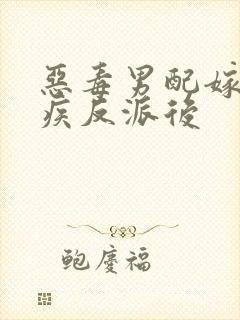 惡毒男配嫁
疾反派後
鲍慶福